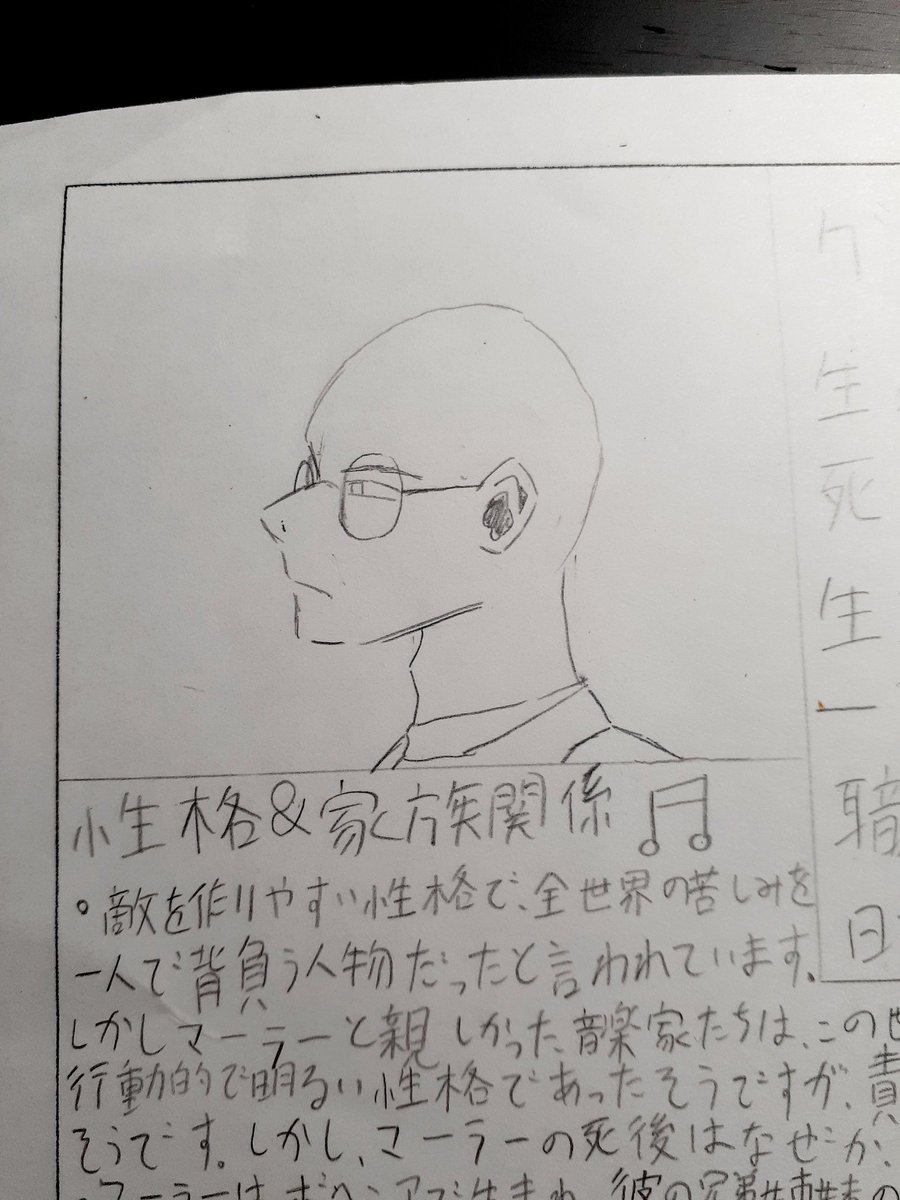 性格&家族関係
。敵を作りやすい性格で、全世界の苦しみを
一人で背負う人物だったと言われています。
しかしマーラーと親しかった音楽家たちは、この世
行動的で明るい性格であったそうですが、責
そうです。しかし、マーラーの死後はなぜか、
・マーラーは、ボヘミアで生まれ、彼の兄弟姉妹の
グ
生
死
生
一
職
日